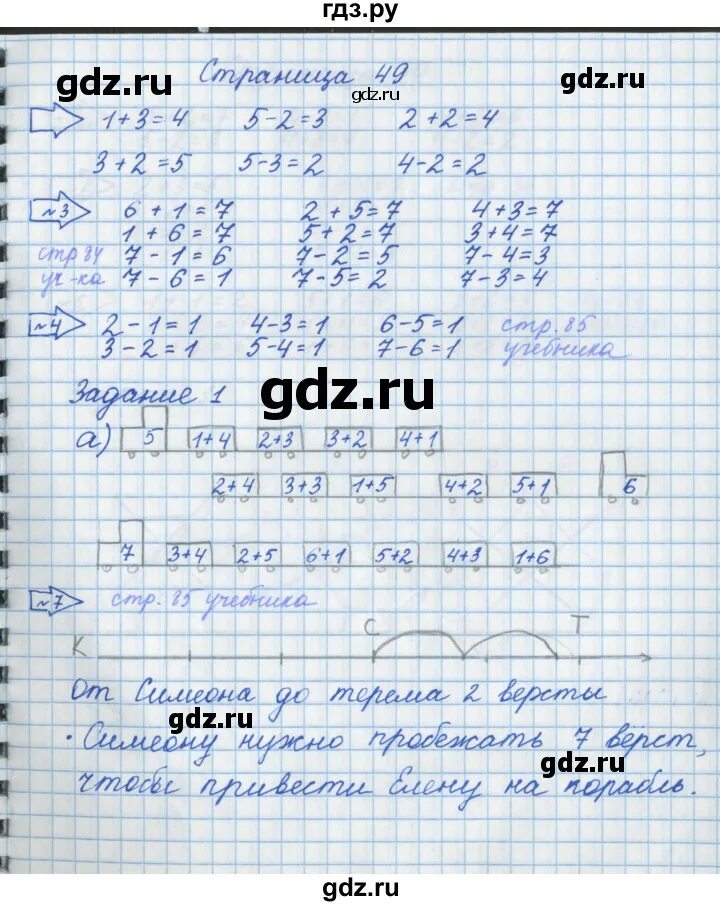 гдз.ру
Страница 49
gdz.ru gdz.ru gdz.ru
1+3=4 5-2=3 2+2=4
3+2=5 5-3=2 4-2=2
№3 6+1=7 2+5=7 4+3=7
1+6=7 5+2=7 3+4=7
стр 84 7-1=6 7-2=5 7-4=3
уч-ка 7-6=1 7-5=2 7-3=4
№4 2-1=1 4-3=1 6-5=1 стр. 85
3-2=1 5-4=1 7-6=1 учебника
Задание 1 gdz.ru
а) 5 1+4 2+3 3+2 4+1
2+4 3+3 1+5 4+2 5+1 6
7 3+4 2+5 6+1 5+2 4+3 1+6
№7 стр. 85 учебника
К С Т
От Симеона до терема 2 версты
gdz.ru
• Симеону нужно пробежать 7 вёрст,
gdz.ru
чтобы привести Елену на порабль.
gdz.ru